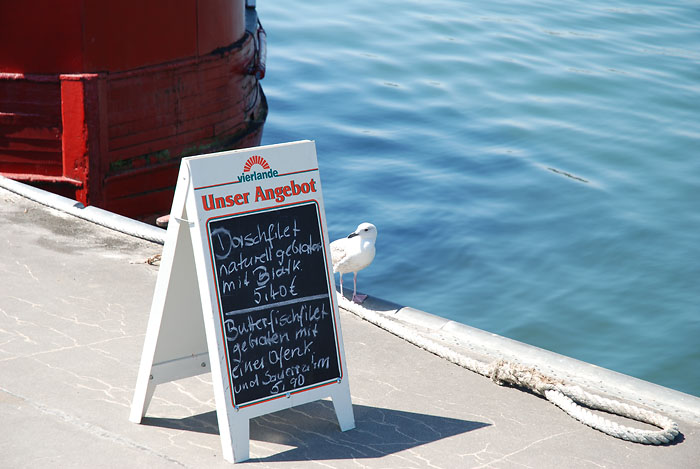 vierlande
Unser Angebot
Dorschfilet
naturell gebraten
mit Bratk.
5,40€
Butterfischfilet
gebraten mit
einer Ofenk.
und Sauerrahm
5,90